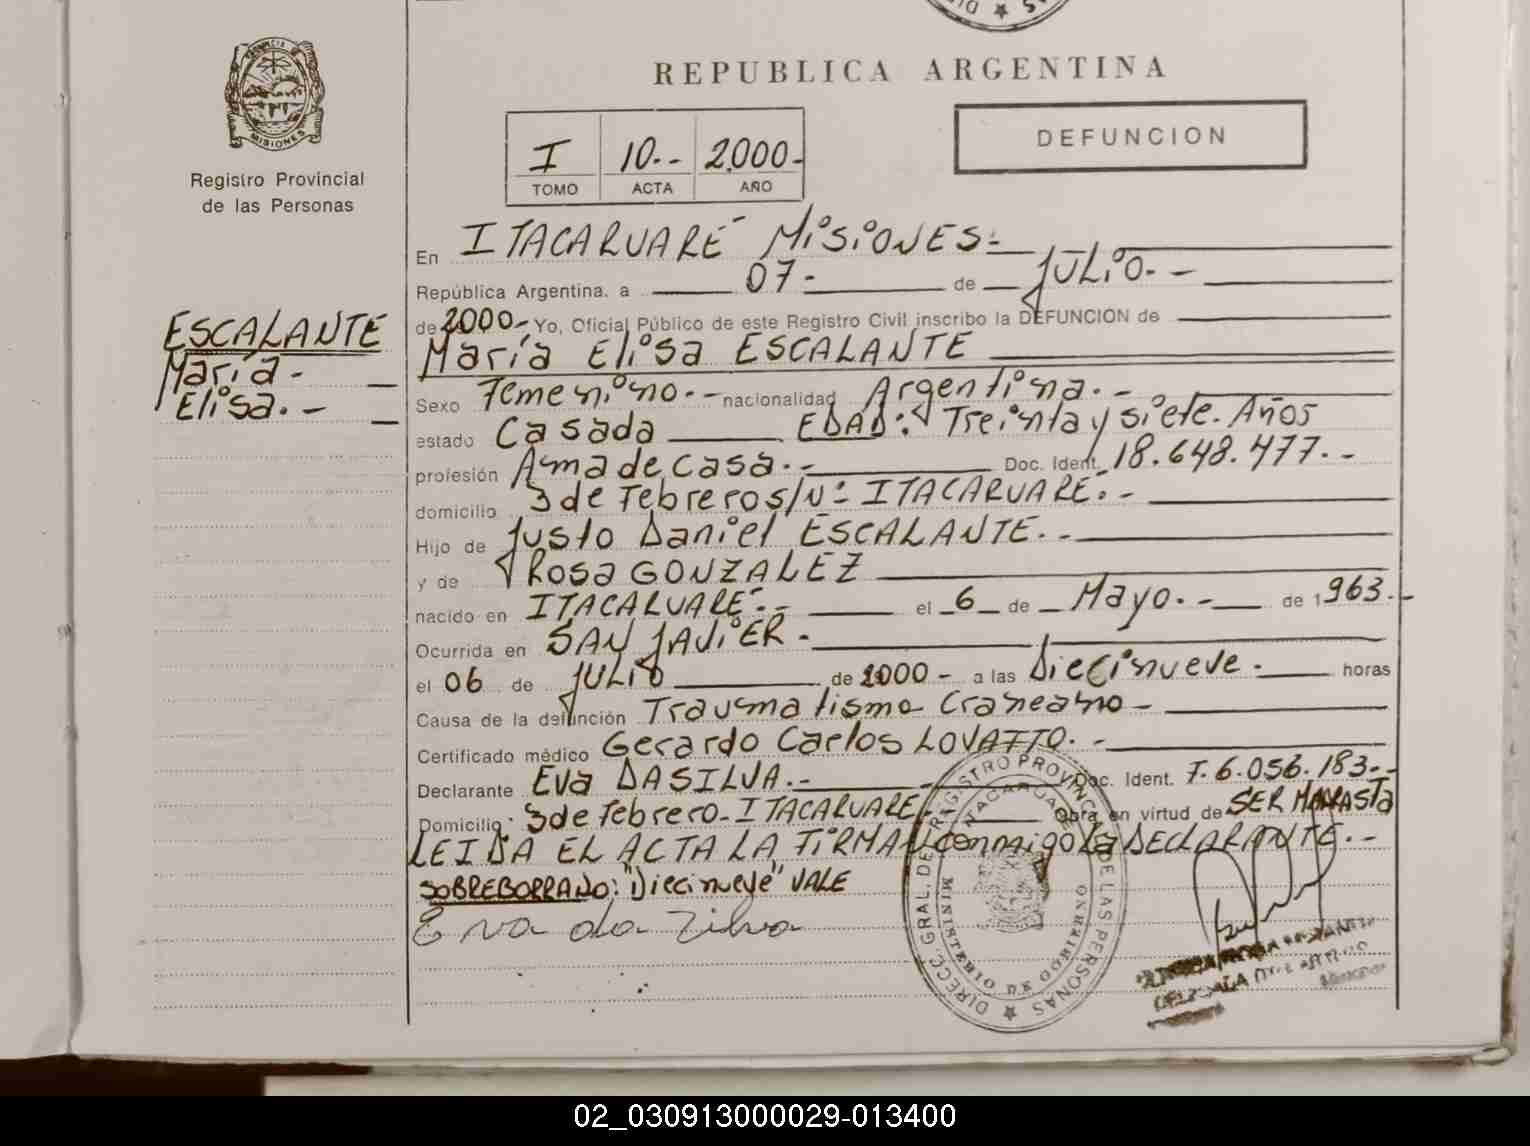 REPUBLICA ARGENTINA
MISIONES
Registro Provincial
de las Personas
I 10.- 2.000-
TOMO ACTA AÑO
DEFUNCION
ESCALANTE
María.-
Elisa.-
En ITACARUARÉ MISIONES=
República Argentina, a 07- de JULIO.-
de 2000- Yo, Oficial Público de este Registro Civil inscribo la DEFUNCION de
María Elisa ESCALANTE
Sexo Femenino.- nacionalidad Argentina.-
estado Casada EDAD: Treinta y siete. Años
profesión Ama de casa.- Doc. Ident. 18.648.477.-
domicilio 3 de Febrero s/Nº ITACARUARE.-
Hijo de Justo Daniel ESCALANTE.-
y de Rosa GONZALEZ
nacido en ITACARUARE.- el 6 de Mayo.- de 1963.-
Ocurrida en SAN JAVIER.
el 06 de JULIO de 2000- a las Diecinueve- horas
Causa de la defunción Traumatismo Craneano-
Certificado médico Gerardo Carlos LOVATTO.-
Declarante Eva DASILVA.- Doc. Ident. F.6.056.183.-
Domicilio: 3 de Febrero-ITACARUARE- Obra en virtud de SER MANASTA
LEIDA EL ACTA LA FIRMA conmigo La DECLARANTE.-
SOBREBORRADO: "Diecinueve" VALE
Eva da Zilva
DIRECC. GRAL. DE REGISTRO PROVINC. DE LAS PERSONAS
MINISTERIO DE GOBIERNO
ITACARUARE
02_030913000029-013400